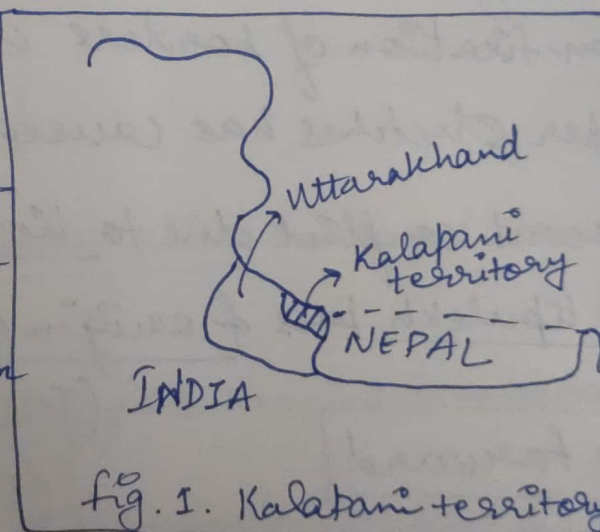 Uttarakhand
Kalapani
territory
NEPAL
INDIA
fig. 1. Kalapani territory